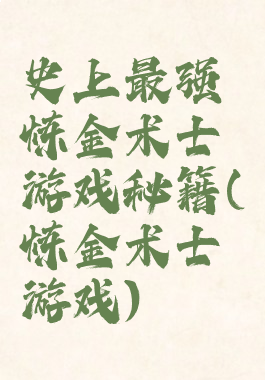 史上最强
炼金术士
游戏秘籍(
炼金术士
游戏)